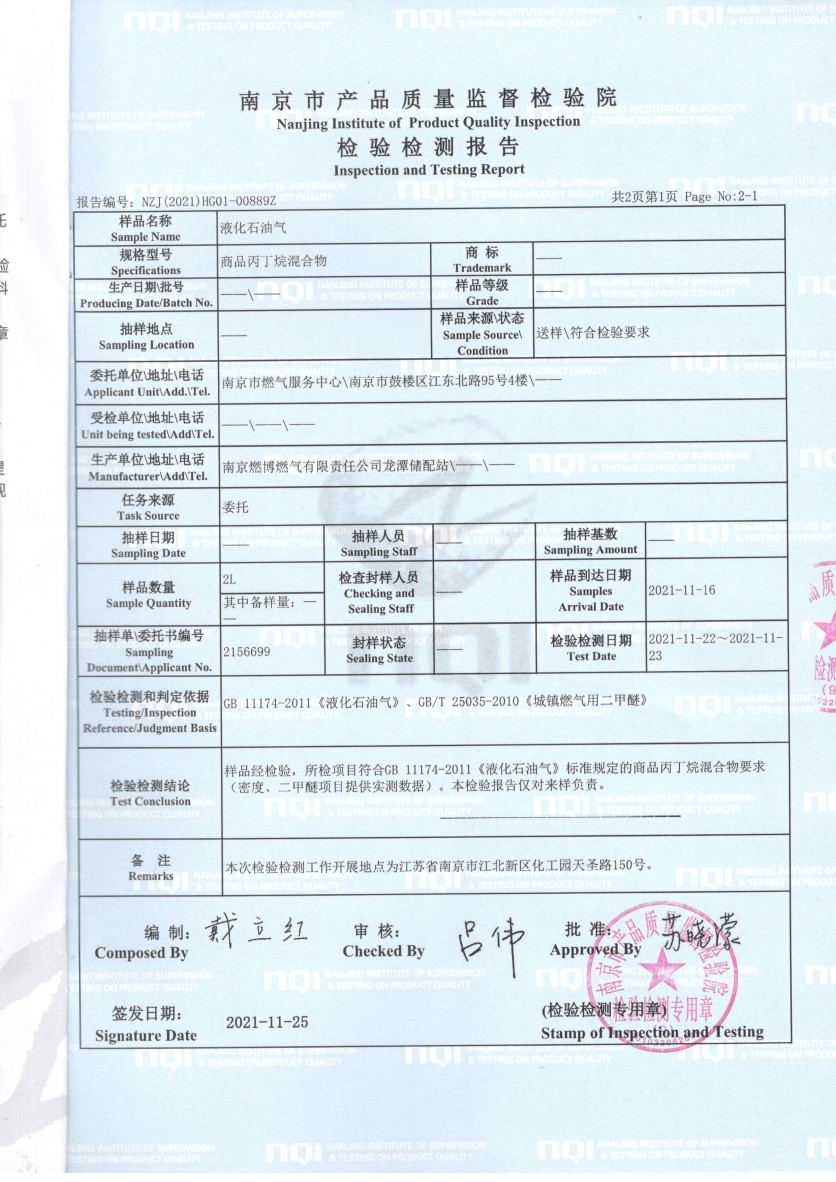 南京市产品质量监督检验院
Nanjing Institute of Product Quality Inspection
检验检测报告
Inspection and Testing Report
报告编号：NZJ(2021)HG01-00889Z
共2页第1页 Page No:2-1
样品名称
Sample Name
液化石油气
规格型号
Specifications
商品丙丁烷混合物
商 标
Trademark
——
生产日期\批号
Producing Date/Batch No.
——\——
样品等级
Grade
——
抽样地点
Sampling Location
——
样品来源\状态
Sample Source\
Condition
送样\符合检验要求
委托单位\地址\电话
Applicant Unit\Add.\Tel.
南京市燃气服务中心\南京市鼓楼区江东北路95号4楼\——
受检单位\地址\电话
Unit being tested\Add\Tel.
——\——\——
生产单位\地址\电话
Manufacturer\Add\Tel.
南京燃博燃气有限责任公司龙潭储配站\——\——
任务来源
Task Source
委托
抽样日期
Sampling Date
——
抽样人员
Sampling Staff
——
抽样基数
Sampling Amount
——
样品数量
Sample Quantity
2L
其中备样量：—
—
检查封样人员
Checking and
Sealing Staff
——
样品到达日期
Samples
Arrival Date
2021-11-16
抽样单\委托书编号
Sampling
Document\Applicant No.
2156699
封样状态
Sealing State
——
检验检测日期
Test Date
2021-11-22～2021-11-
23
检验检测和判定依据
Testing/Inspection
Reference/Judgment Basis
GB 11174-2011《液化石油气》、GB/T 25035-2010《城镇燃气用二甲醚》
检验检测结论
Test Conclusion
样品经检验，所检项目符合GB 11174-2011《液化石油气》标准规定的商品丙丁烷混合物要求
（密度、二甲醚项目提供实测数据）。本检验报告仅对来样负责。
备 注
Remarks
本次检验检测工作开展地点为江苏省南京市江北新区化工园天圣路150号。
编 制：
Composed By
戴立红
审 核：
Checked By
吕伟
批 准：
Approved By
苏晓濛
签发日期：
Signature Date
2021-11-25
(检验检测专用章)
Stamp of Inspection and Testing
南京市产品质量监督检验院
检验检测专用章
nqi NANJING INSTITUTE OF SUPERVISION
& TESTING ON PRODUCT QUALITY